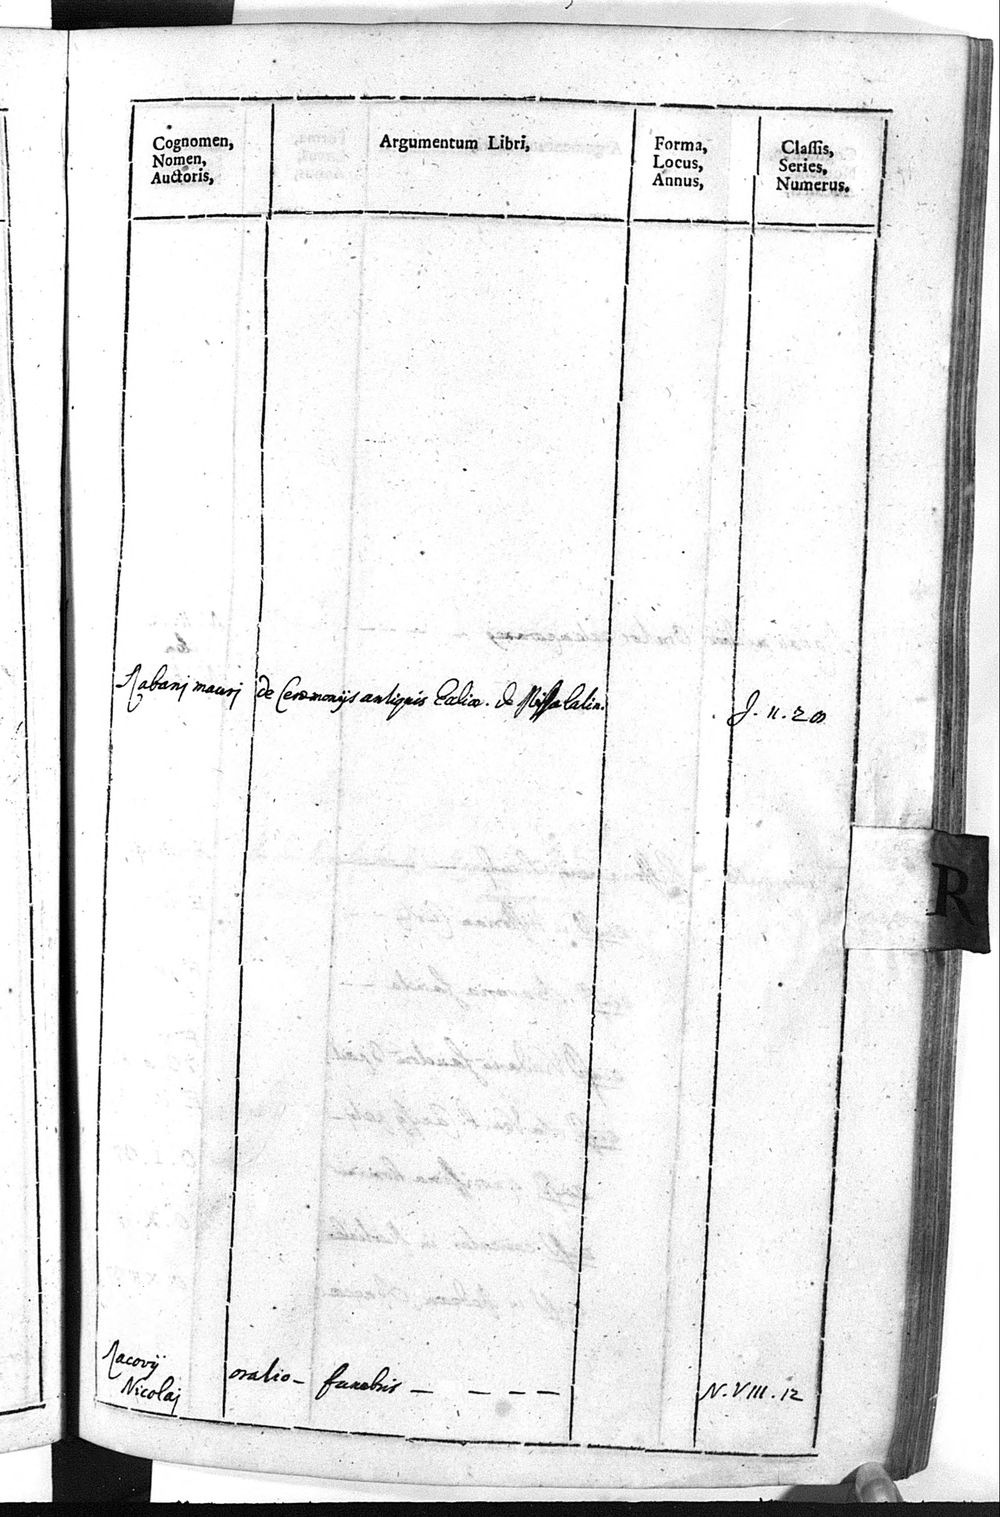 Cognomen,
Nomen,
Auctoris,
Argumentum Libri,
Forma,
Locus,
Annus,
Classis,
Series,
Numerus.
Rabanj maurj de Ceremonijs antiquis de Missa latin. J. 11. 20
R
Racovij
Nicolaj oratio - funebris - - - - N. VIII. 12